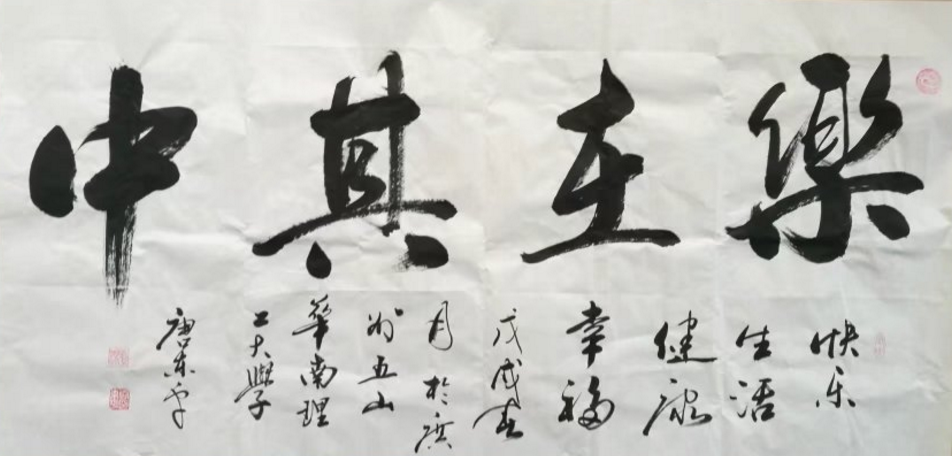 樂在其中
快乐
生活
健康
幸福
戊戌春
月於广
州五山
華南理
工大學
唐东平